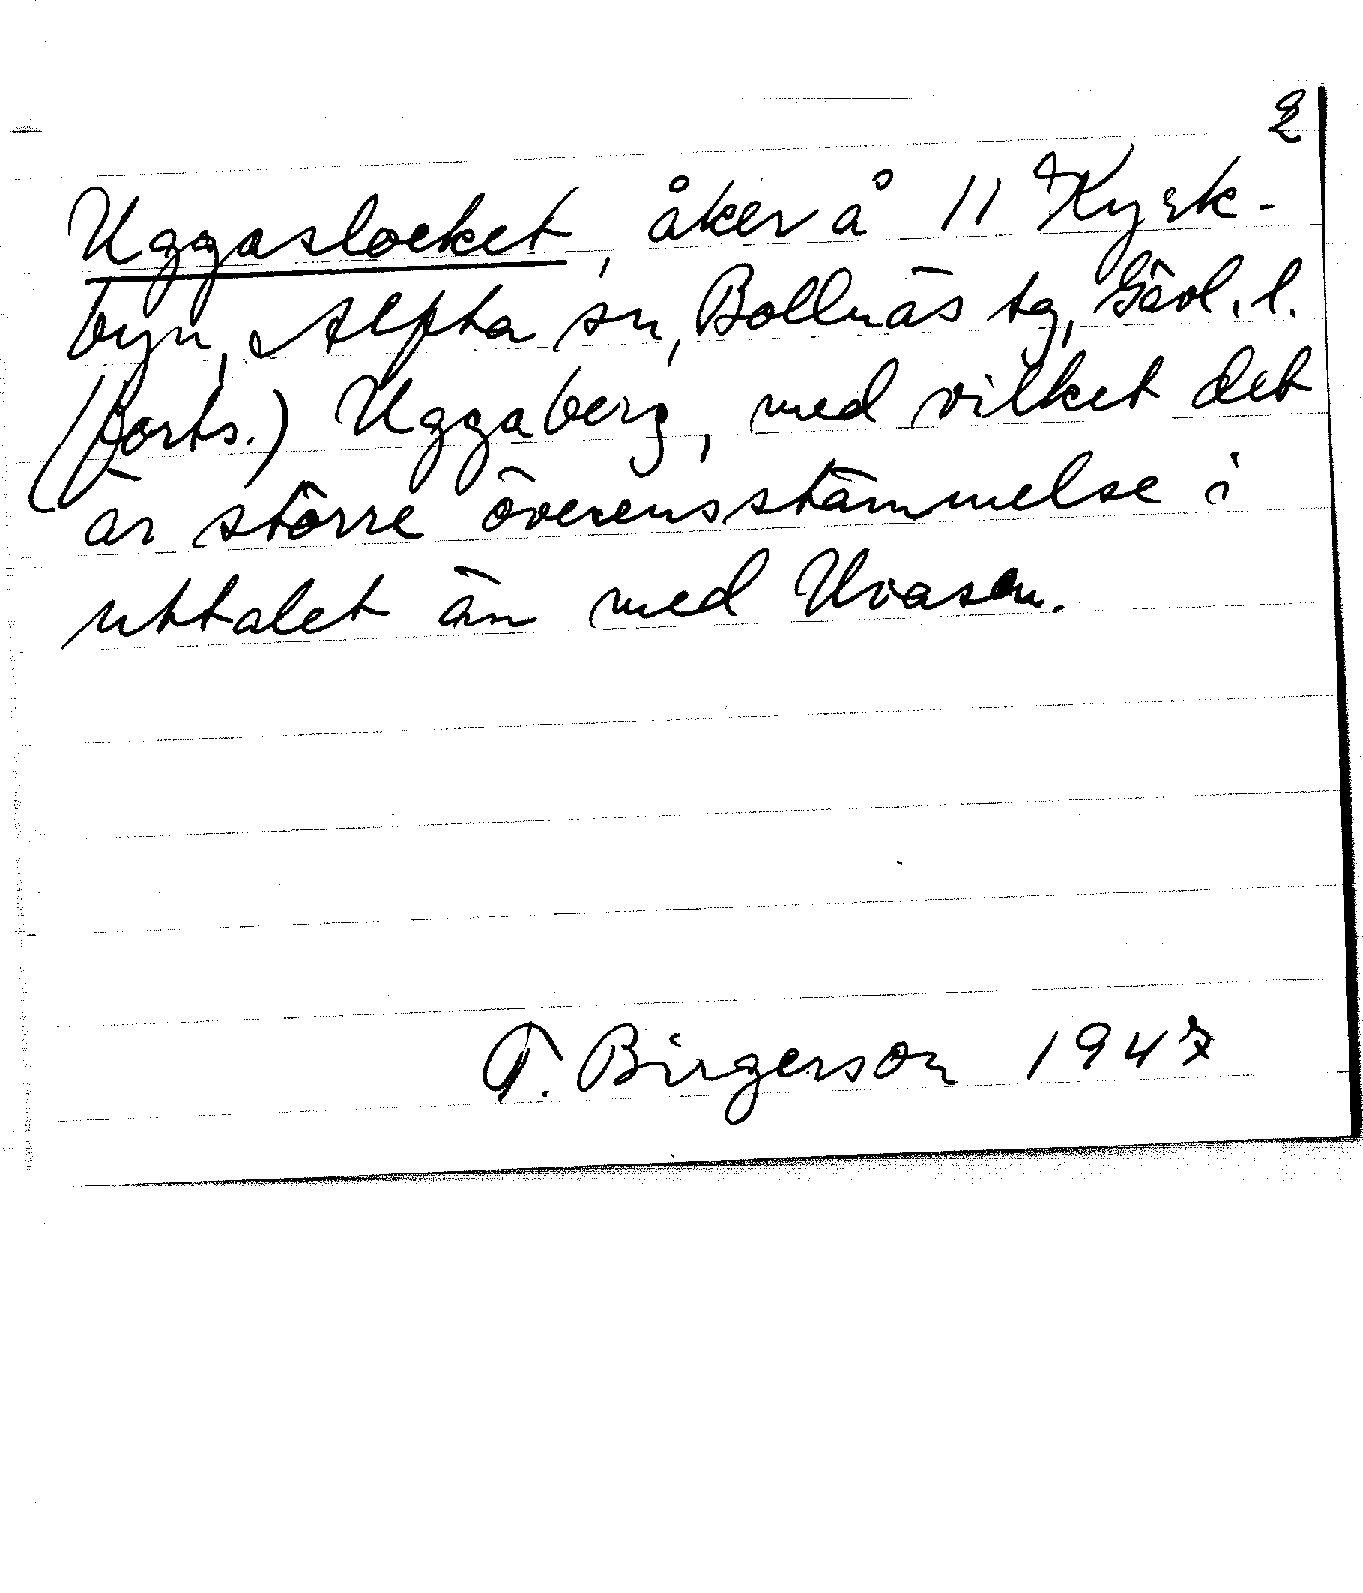 2
Uggaslocket, åker å 11 Kyrk-
byn, Alfta sn, Bollnäs tg, Gävl. l.
(forts.) Uggaberg, med vilket det
är större överensstämmelse i
uttalet än med Uvasen.
T. Birgerson 1947